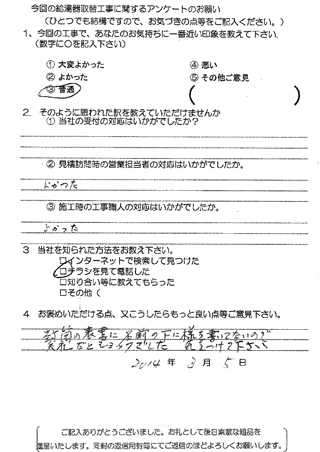 今回の給湯器取替工事に関するアンケートのお願い
（ひとつでも結構ですので、お気づきの点等をご記入ください。）
1、今回の工事で、あなたのお気持ちに一番近い印象を教えて下さい.
（数字に○を記入下さい）
① 大変よかった ④ 悪い
② よかった ⑤ その他ご意見
③ 普通 （ ）
2．そのように思われた訳を教えていただけませんか
① 当社の受付の対応はいかがでしたか？
② 見積訪問時の営業担当者の対応はいかがでしたか。
よかった
③ 施工時の工事職人の対応はいかがでしたか。
よかった
3 当社を知られた方法をお教え下さい。
□インターネットで検索して見つけた
□チラシを見て電話した
□知り合い等に教えてもらった
□その他（
4 お褒めいただける点、又こうしたらもっと良い点等ご意見下さい。
封筒の表書に名前の下に様を書いてないので
失礼だとショックでした 気をつけて下さい
2014 年 3 月 5 日
ご記入ありがとうございました。お礼として後日素敵な粗品を
進呈いたします。同封の返信用封筒にてご返信のほどよろしくお願いします。